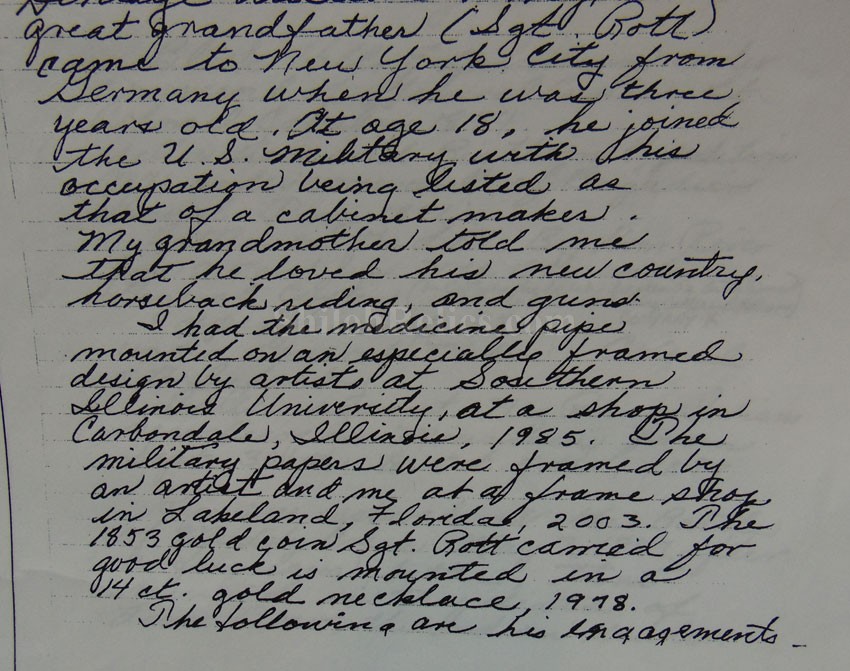 great grandfather (Sgt. Rott)
came to New York City from
Germany when he was three
years old. At age 18, he joined
the U.S. Military with his
occupation being listed as
that of a cabinet maker.
My grandmother told me
that he loved his new country,
horseback riding, and guns.
I had the medicine pipe
mounted on an especially framed
design by artists at Southern
Illinois University, at a shop in
Carbondale, Illinois, 1985. The
military papers were framed by
an artist and me at a frame shop
in Lakeland, Florida, 2003. The
1853 gold coin Sgt. Rott carried for
good luck is mounted in a
14 ct. gold necklace, 1978.
The following are his engagements -